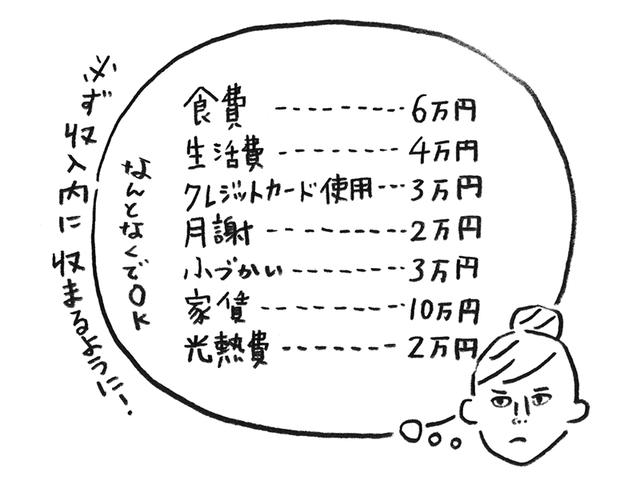 必ず収入内に収まるように！
なんとなくでOK
食費 ---------- 6万円
生活費 --------- 4万円
クレジットカード使用--- 3万円
月謝 ---------- 2万円
小づかい -------- 3万円
家賃 ---------- 10万円
光熱費 -------- 2万円